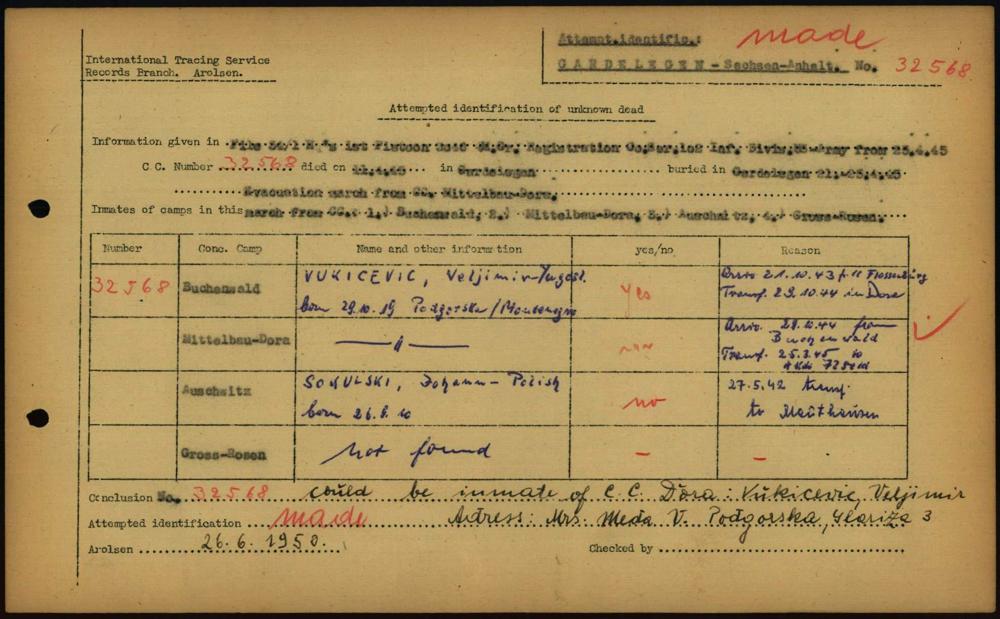 Attempt.identific.: made
International Tracing Service
Records Branch. Arolsen.
GARDELEGEN - Sachsen-Anhalt. No. 32568
Attempted identification of unknown dead
Information given in Registration from 25.4.45
C C. Number 32568 died on in Gardelegen buried in Gardelegen 21.-25.4.45
Evacuation march from CC. Mittelbau-Dora.
Inmates of camps in this march from CC.: 1.) Buchenwald, 2.) Mittelbau-Dora, 3.) Auschwitz, 4.) Gross-Rosen.
Number Conc. Camp Name and other information yes/no Reason
32568 Buchenwald VUKICEVIC, Veljimir-Jugosl. born 29.10.19 Podgorska/Montenegro yes 21.10.43 Flossenbürg Transf. 29.10.44 in Dora
Mittelbau-Dora —— " —— 29.10.44 from Buchenwald Transf. 25.3.45 to
Auschwitz SOKULSKI, Johann - Polish born no 27.5.42 transf. to Mauthausen
Gross-Rosen not found - -
Conclusion No. 32568 could be inmate of C.C. Dora: Vukicevic, Veljimir
Attempted identification made Adress: Mrs. Meda V. Podgorska, 3
Arolsen 26.6.1950. Checked by